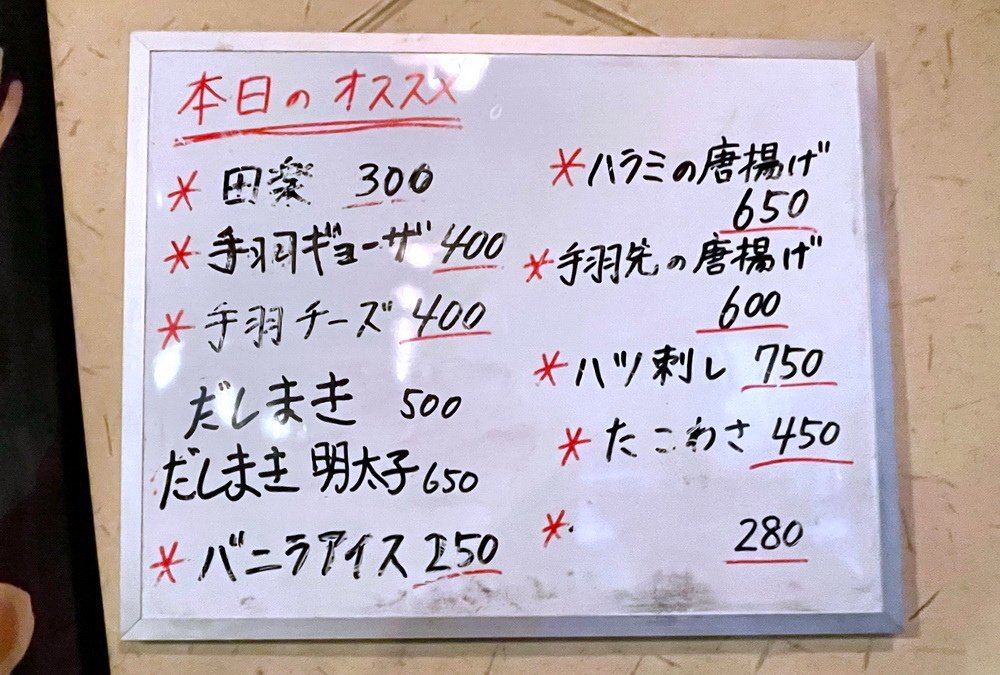 本日のオススメ
* 田楽 300
* 手羽ギョーザ 400
* 手羽チーズ 400
だしまき 500
だしまき 明太子 650
* バニラアイス 250
* ハラミの唐揚げ
650
* 手羽先の唐揚げ
600
* ハツ刺し 750
* たこわさ 450
* 280